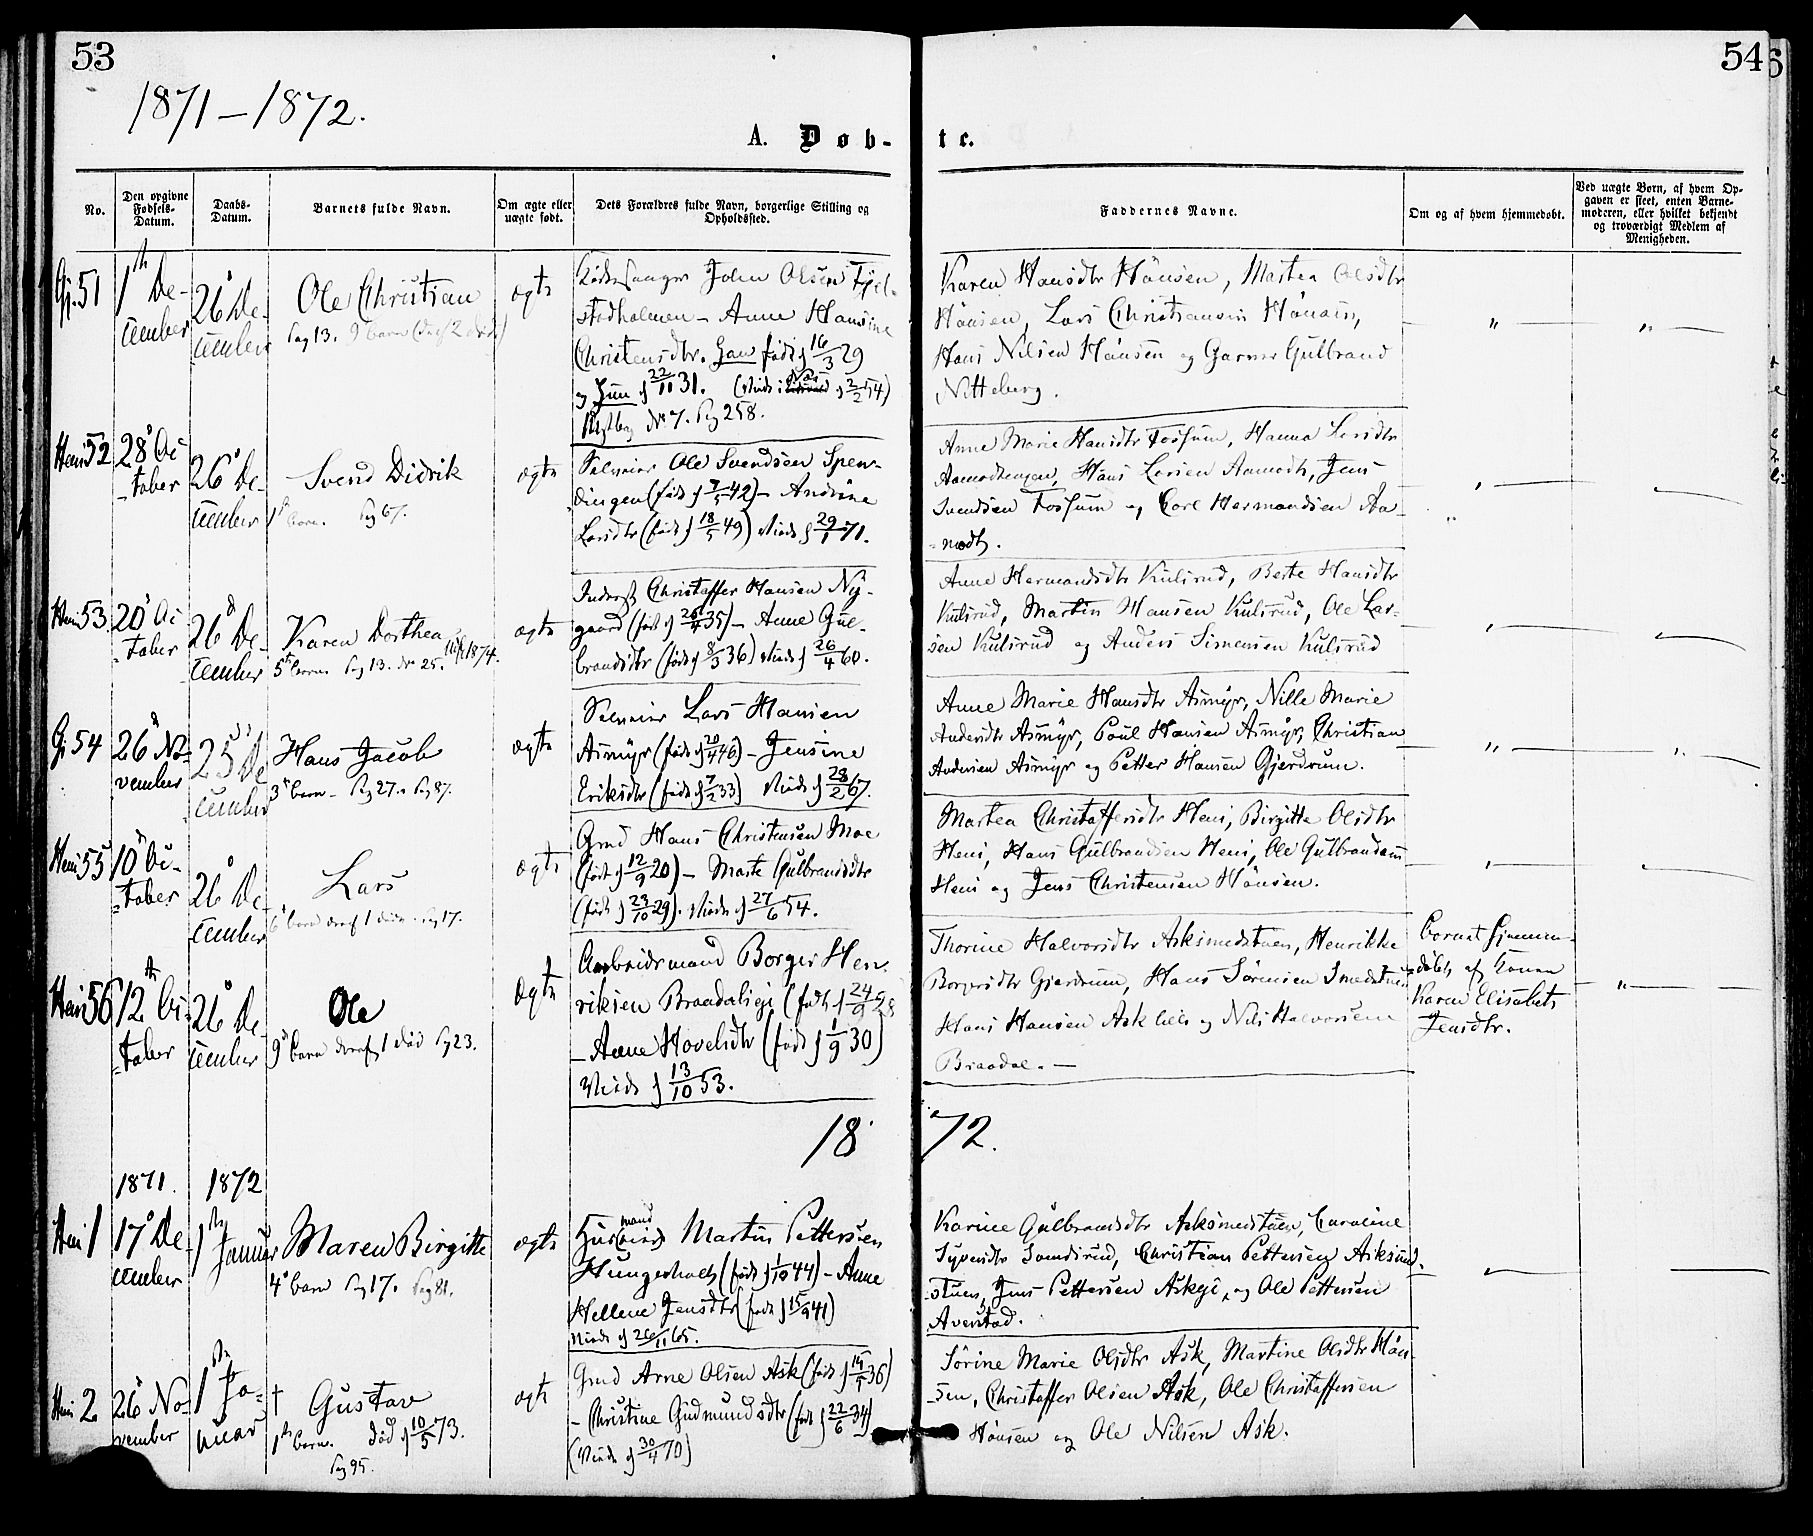 53
54
1871–1872.
A. Døb-
te.
No.
Den opgivne Fødsels-Datum.
Daabs-Datum.
Barnets fulde Navn.
Om ægte eller uægte født.
Dets Forældres fulde Navn, borgerlige Stilling og Opholdssted.
Faddernes Navne.
Om og af hvem hjemmedøbt.
Ved uægte Børn, af hvem Opgaven er skeet, enten Barnemoderen, eller hvilket bekjendt og troværdigt Medlem af Menigheden.
Gj. 51
1th De-
cember
26 De-
cember
Ole Christian
Pag 13. 9 barn (deraf 2 døde)
ægte
Kirkesanger John Olsen Fjel-
stadholmen – Anne Hansine
Christensdtr. Han født 16/3 29
og Hun 22/11 31.
No 7. Pag 258.
Karen Hansdtr Hønsen, Martea Olsdtr
Hønsen, Lars Christiansen Hønsen,
Hans Nilsen Hønsen og Garver Gulbrand
Nitteberg.
Heni 52
28 Oc-
tober
26 De-
cember
Svend Didrik
1 barn. Pag 67.
ægte
Selveier Ole Svendsen Spen-
dingen (født 7/5 42) – Andrine
Larsdtr (født 18/5 49) Viede 29/1 71.
Anne Marie Hansdtr Fossum, Hanna Larsdtr
Aamodtengen, Hans Larsen Aamodt, Jens
Svendsen Fossum og Carl Hermandsen Aa-
modt.
Heni 53
20 Oc-
tober
26 De-
cember
Karen Dorthea
5 barn Pag 13. No 25. 1874.
ægte
Inderst Christoffer Hansen Ny-
gaard (født 26/4 35) – Anne Gul-
brandsdtr (født 8/3 36) Viede 26/4 60.
Anne Hermandsdtr Kulsrud, Berte Hansdtr
Kulsrud, Martin Hansen Kulsrud, Ole Lar-
sen Kulsrud og Anders Simensen Kulsrud
Gj 54
26 No-
vember
25 De
cember
Hans Jacob
3 barn – Pag 27. Pag 87.
ægte
Selveier Lars Hansen
Asmyr (født 20/4 46) – Jensine
Eriksdtr (født 7/2 33) Viede 28/2 67.
Anne Marie Hansdtr Asmyr, Nille Marie
Andersdtr Asmyr, Poul Hansen Asmyr, Christian
Andersen Asmyr og Petter Hansen Gjerdrum.
Heni 55
10 Oc-
tober
26 De-
cember
Lars
6 barn deraf 1 død. Pag 17.
ægte
Grmd Hans Christensen Moe
(født 12/9 20) – Marte Gulbrandsdtr
(født 23/10 29). Viede 27/6 54.
Martea Christoffersdtr Heni, Birgitte Olsdtr
Heni, Hans Gulbrandsen Heni, Ole Gulbrandsen
Heni og Jens Christensen Hønsen.
Heni 56
12 Oc-
tober
26 De-
cember
Ole
9 barn deraf 1 død Pag 23.
ægte
Arbeidsmand Borger Hen-
riksen Braadaleie (født 24/9 28
– Anne Hovelsdtr (født 1/9 30)
Viede 13/10 53.
Thorine Halvorsdtr Asksmedstuen, Henrikke
Borgersdtr Gjerdrum, Hans Sørensen Smedstuen
Hans Hansen Ask og Nils Halvorsen
Braadal. –
Barnet hjemme-
døbt af Konen
Karen Elisabeth
Jensdtr.
18 72.
1871. 1872
Heni 1
17 De-
cember
1 Januar
Maren Birgitte
4 barn Pag 17. Pag 81.
ægte
Husmand Martin Pettersen
Hungerholt (født 1/10 44) – Anne
Hellene Jensdtr (født 15/9 41)
Viede 26/11 65.
Karine Gulbrandsdtr Asksmedstuen, Caroline
Syversdtr Sandsrud, Christian Pettersen Asksmed-
stuen, Jens Pettersen Askeje, og Ole Pettersen
Averstad.
Heni 2
26 No-
vember
1 Ja-
nuar
† Gustav
1 barn. død 10/5 73.
Pag 95.
ægte
Grmd Arne Olsen Ask (født 36)
– Christine Gudmundsdtr (født 22/6 34)
(Viede 30/4 70)
Sørine Marie Olsdtr Ask, Martine Olsdtr Høn-
sen, Christoffer Olsen Ask, Ole Christoffersen
Hønsen og Ole Nilsen Ask.